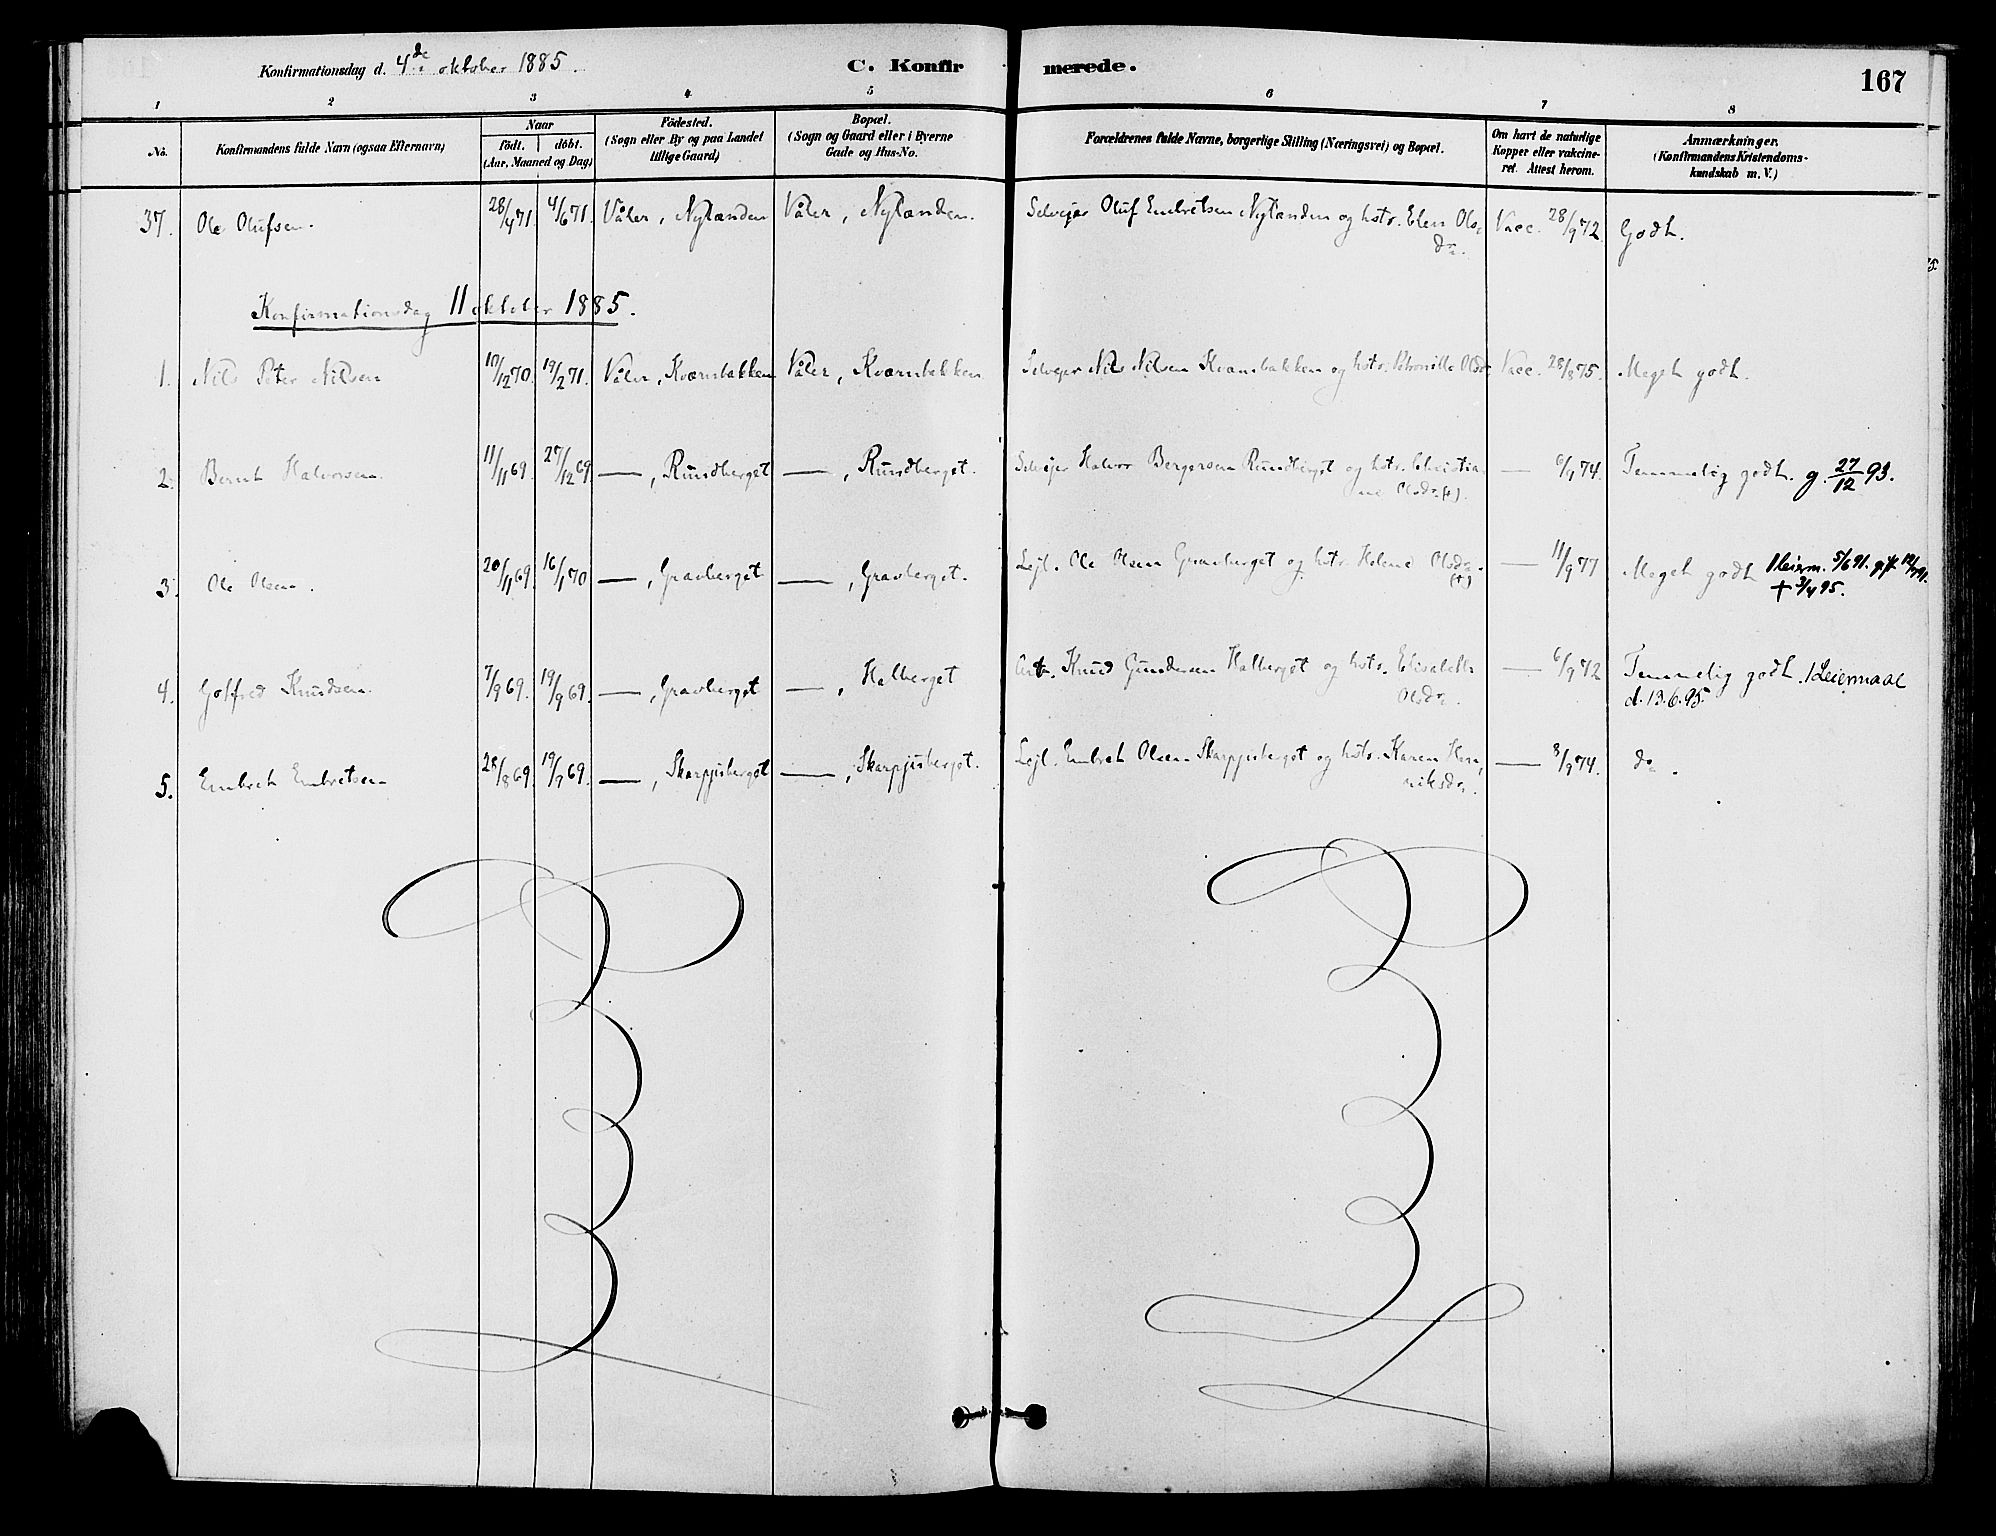 Konfirmationsdag d. 4de oktober 1885.
C. Konfirmerede.
167
1 2 3 4 5 6 7 8
No.
Konfirmandens fulde Navn (ogsaa Efternavn)
Naar
födt. döbt.
(Aar, Maaned og Dag)
Födested.
(Sogn eller By og paa Landet
tillige Gaard)
Bopæl.
(Sogn og Gaard eller i Byerne
Gade og Hus-No.
Forældrenes fulde Navne, borgerlige Stilling (Næringsvei) og Bopæl.
Om havt de naturlige
Kopper eller vakcine-
ret. Attest herom.
Anmærkninger.
(Konfirmandens Kristendoms-
kundskab m. V.)
37. Ole Olufsen. 28/4 71. 4/6 71. Våler, Nylænden Våler, Nylænden. Selvejer Oluf Embretsen Nylænden og hstr. Elen Ols- Vacc. 28/9 72. Godt.
dr.
Konfirmationsdag 11 oktober 1885.
1. Nils Peter Nilsen 10/12 70. 19/2 71. Våler, Kværnbakken Våler, Kværnbakken Selvejer Nils Nilsen Kværnbakken og hstr. Petronille Olsdr. Vacc. 28/8 75. Meget godt.
2. Bernt Halvorsen. 11/11 69. 27/12 69. — , Rundberget — , Rundberget. Selvejer Halvor Bergersen Rundberget og hstr. Christia- — 6/9 74. Temmelig godt. g. 27/12 93.
ne Olsdr. (†).
3. Ole Olsen. 20/11 69. 16/1 70 — , Gravberget — , Gravberget. Lejl. Ole Olsen Gravberget og hstr. Helene Olsdr. — 11/9 77 Meget godt. 1 leierm. 5/6 91. gift 12/7 91.
(†) † 3/4 95.
4. Gotfred Knudsen. 7/9 69. 19/9 69. — , Gravberget — , Halberget Knud Gundersen Halberget og hstr. Elisabeth — 6/9 72 Temmelig godt. 1 Leiermaal
Olsdr. d. 13.6.95.
5. Embret Embretsen 28/8 69. 19/9 69. — , Skarpjisberget — , Skarpjisberget. Lejl. Embret Olsen Skarpjisberget og hstr. Karen Hen- — 8/9 74. do.
riksdr.